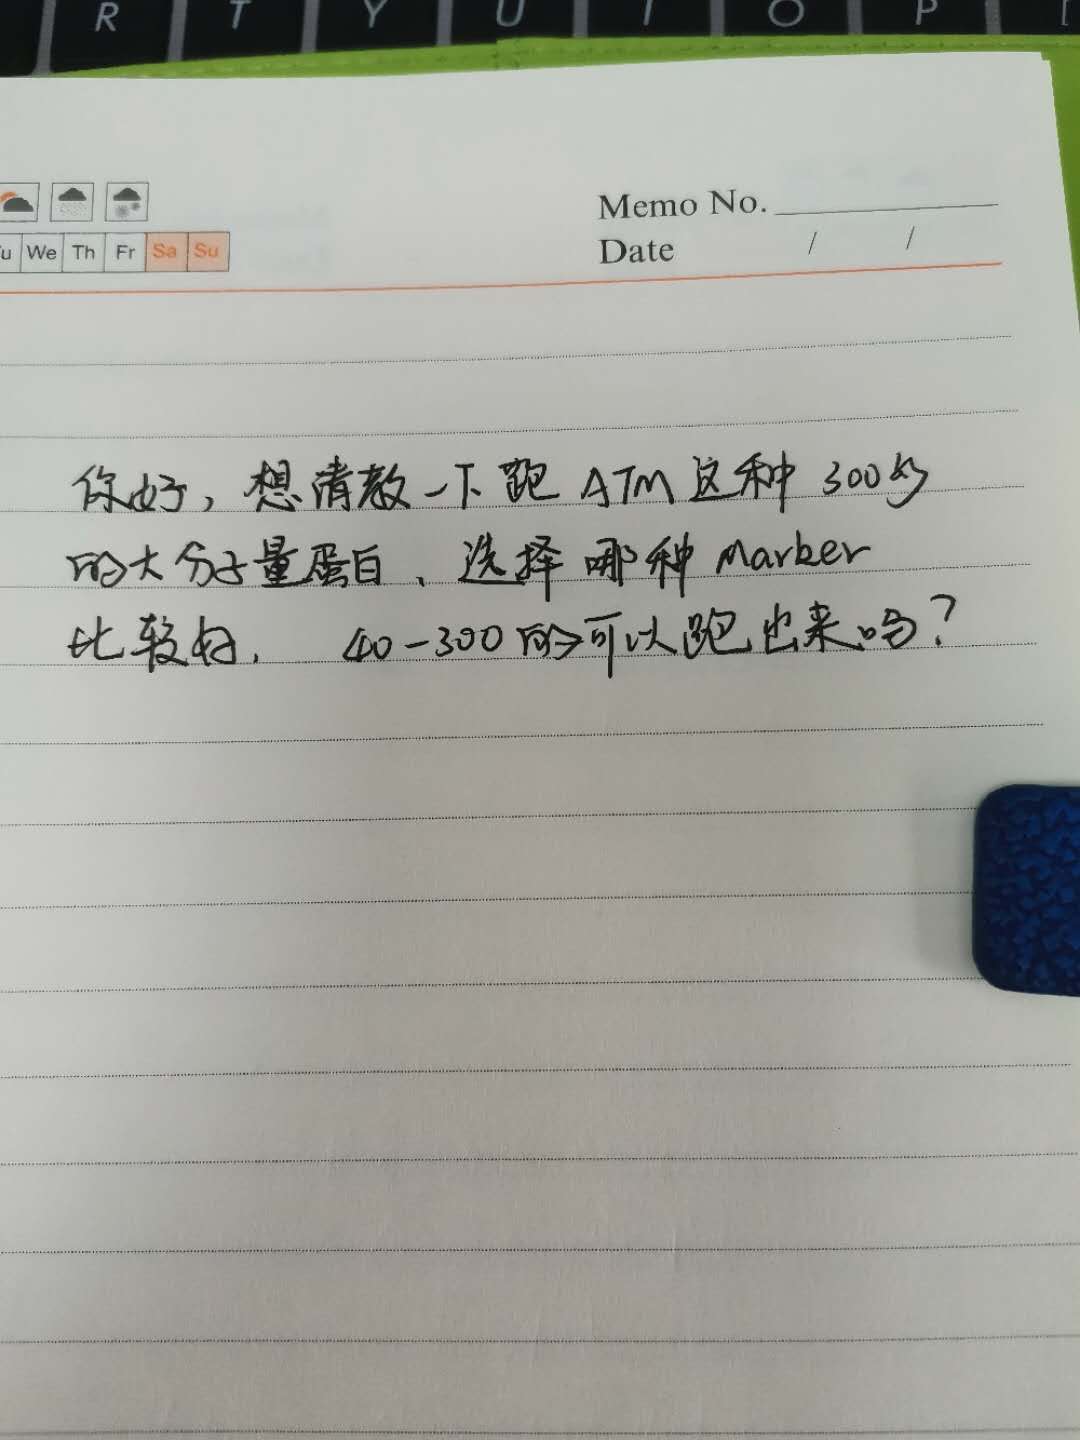 R T Y U I O P [
Memo No.
u We Th Fr Sa Su
Date / /
你好，想请教一下跑 ATM 这种 300多
的大分子量蛋白、选择哪种 Marker
比较好. 40-300的可以跑出来吗？